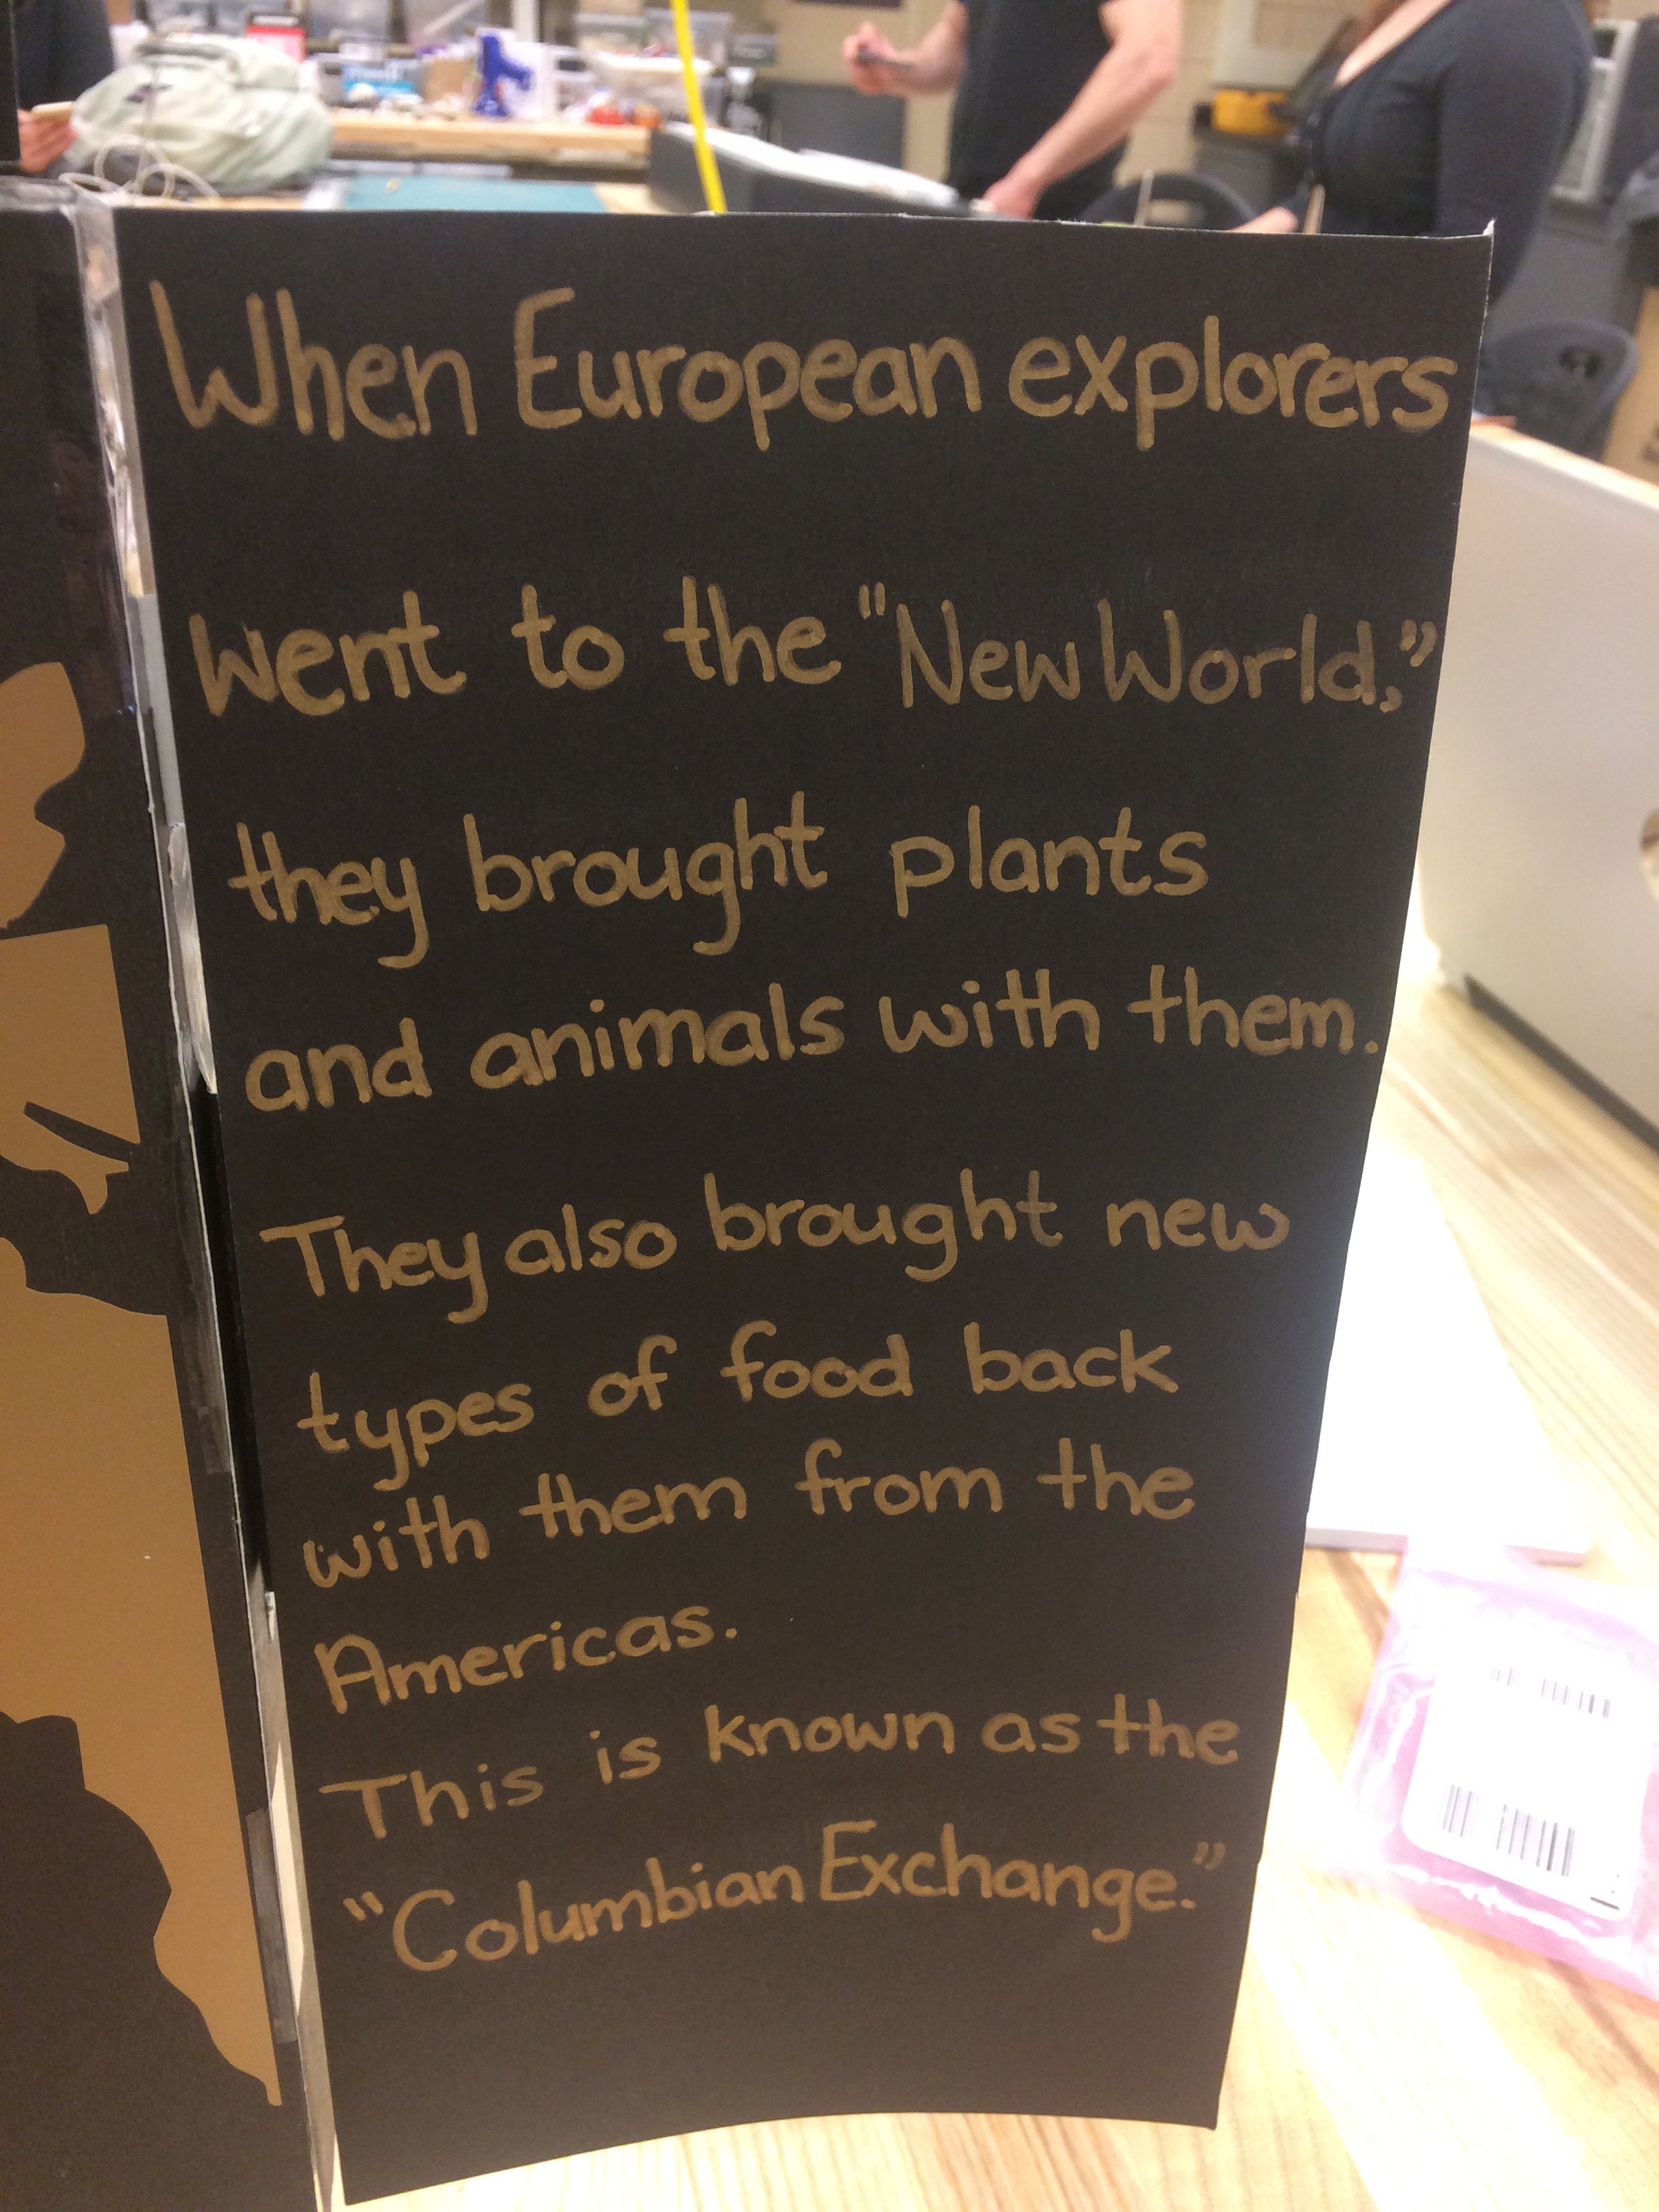 When European explorers
went to the "New World,"
they brought plants
and animals with them.
They also brought new
types of food back
with them from the
Americas.
This is known as the
"Columbian Exchange."